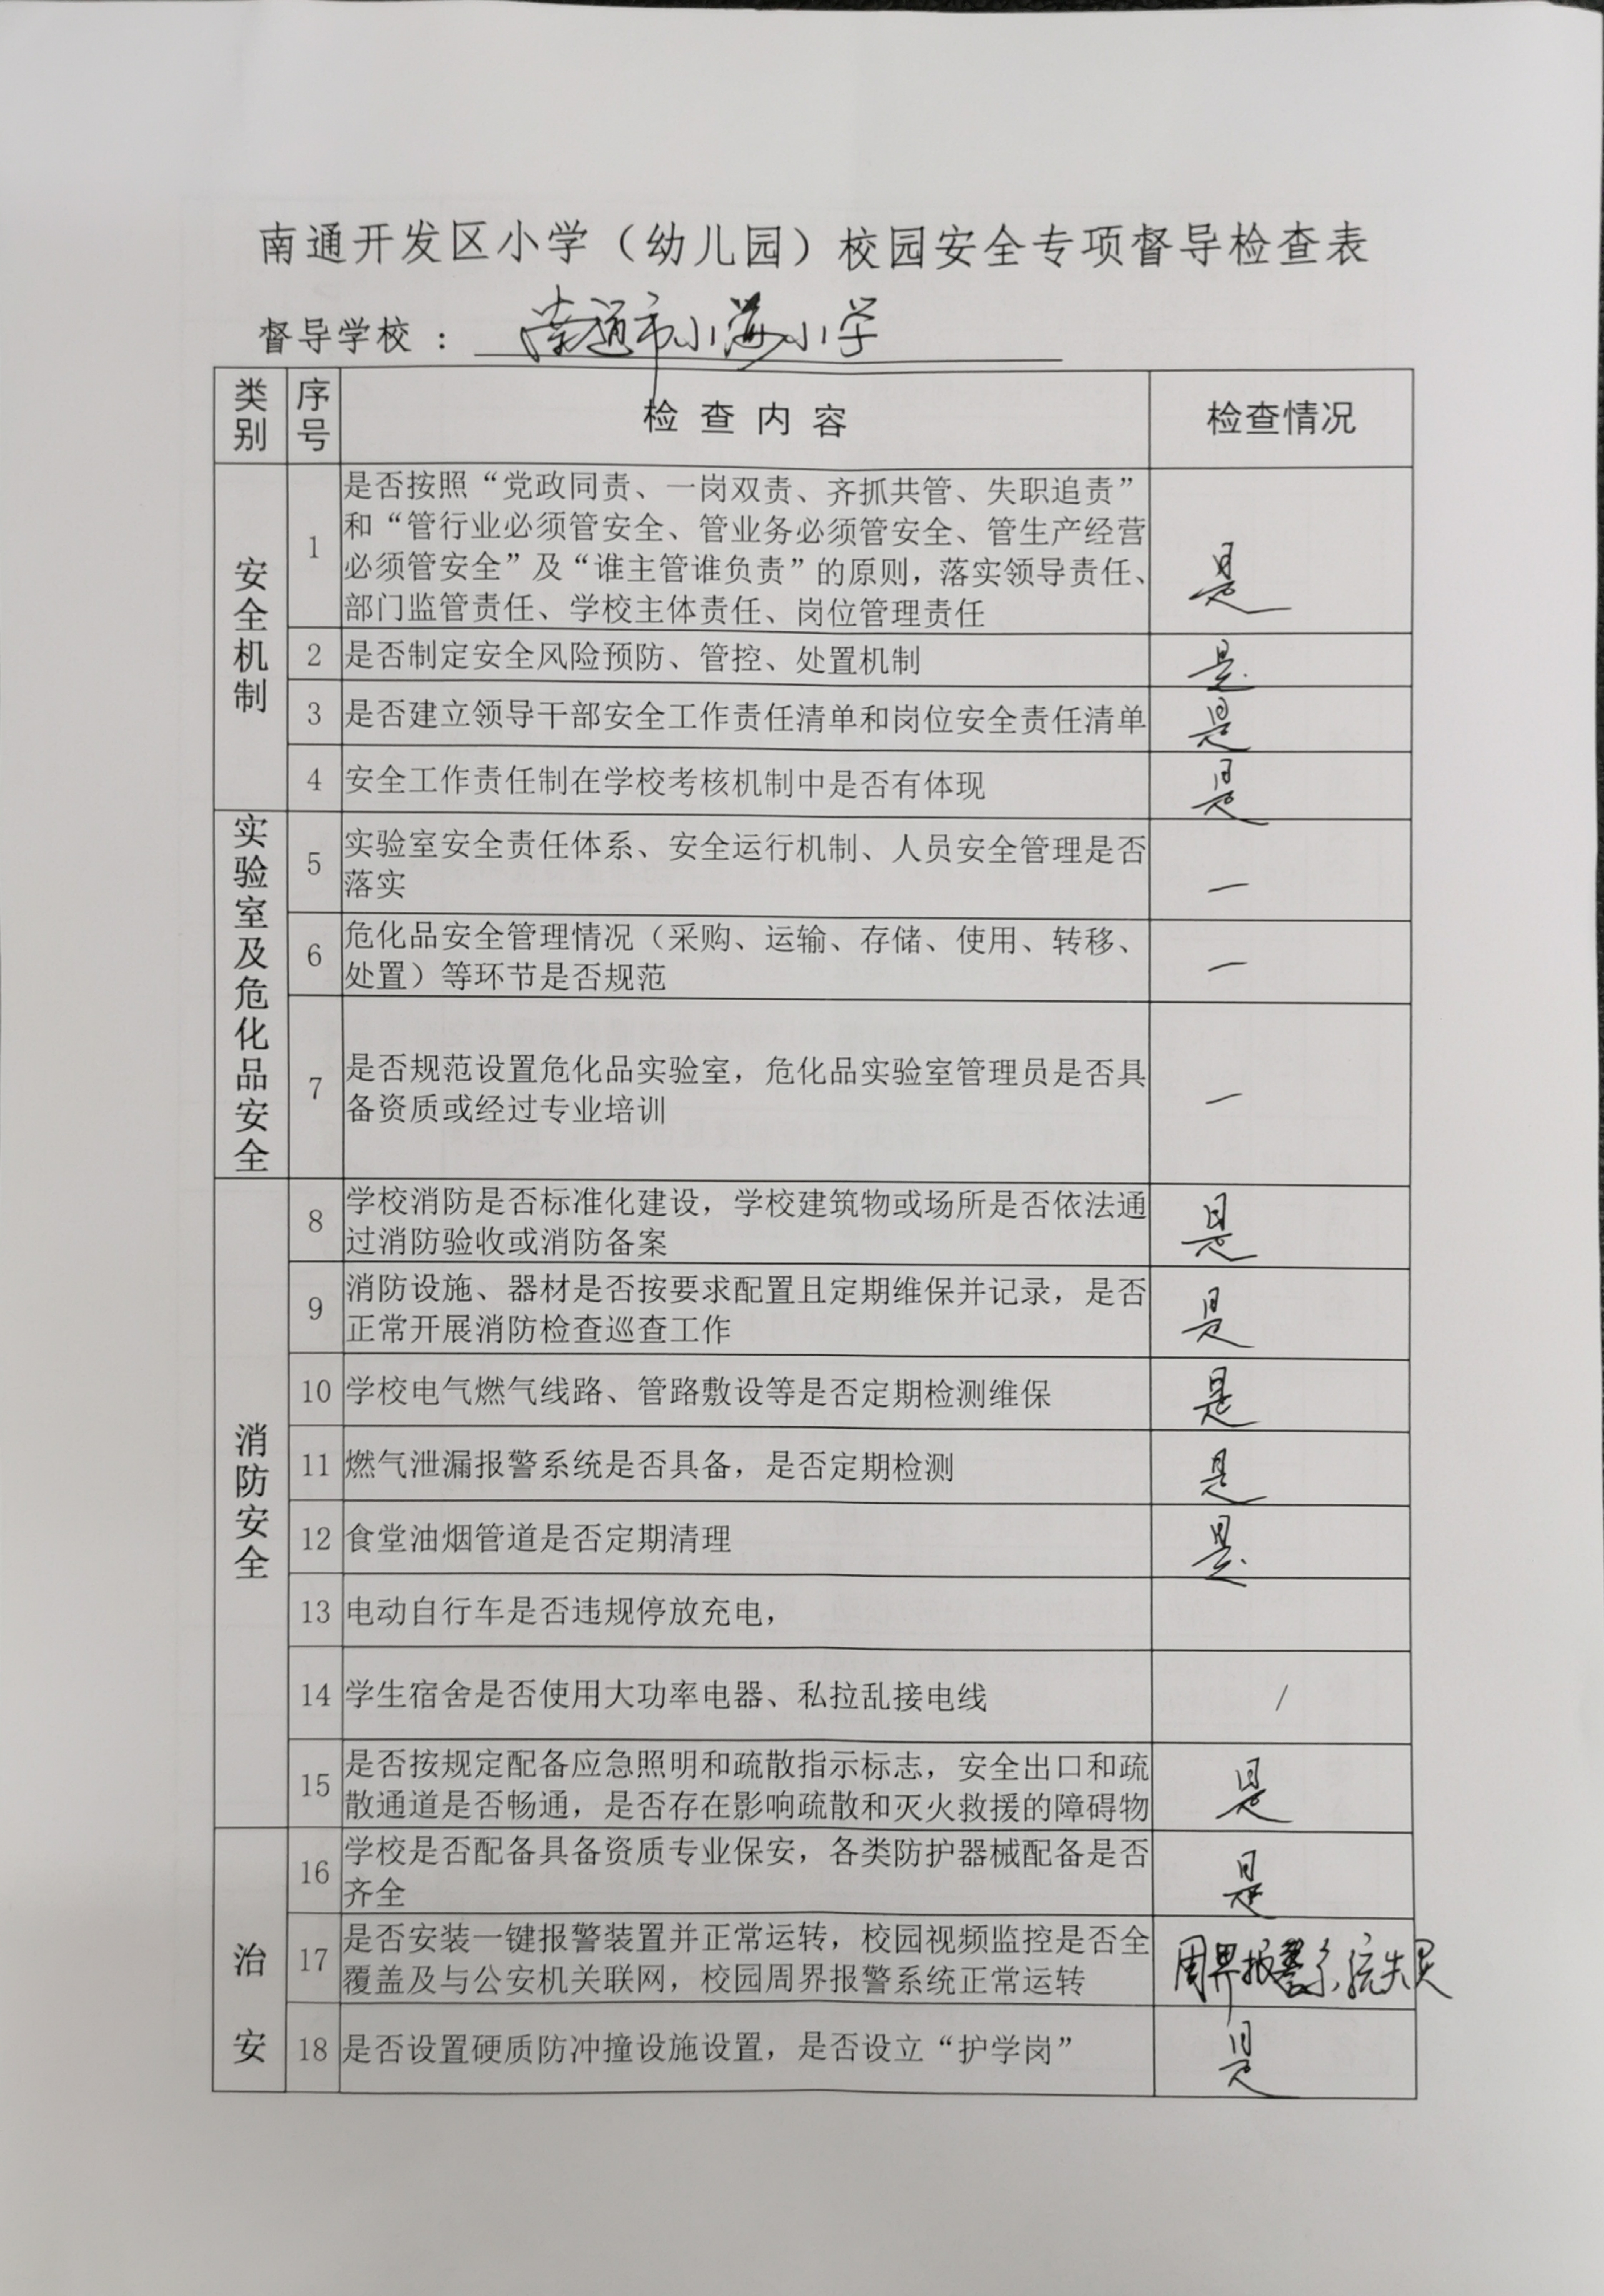 南通开发区小学（幼儿园）校园安全专项督导检查表
督导学校：南通市小海小学
类别 序号 检查内容 检查情况
安全机制
1 是否按照“党政同责、一岗双责、齐抓共管、失职追责”
和“管行业必须管安全、管业务必须管安全、管生产经营
必须管安全”及“谁主管谁负责”的原则，落实领导责任、
部门监管责任、学校主体责任、岗位管理责任 是
2 是否制定安全风险预防、管控、处置机制 是
3 是否建立领导干部安全工作责任清单和岗位安全责任清单 是
4 安全工作责任制在学校考核机制中是否有体现 是
实验室及危化品安全
5 实验室安全责任体系、安全运行机制、人员安全管理是否
落实 —
6 危化品安全管理情况（采购、运输、存储、使用、转移、
处置）等环节是否规范 —
7 是否规范设置危化品实验室，危化品实验室管理员是否具
备资质或经过专业培训 —
消防安全
8 学校消防是否标准化建设，学校建筑物或场所是否依法通
过消防验收或消防备案 是
9 消防设施、器材是否按要求配置且定期维保并记录，是否
正常开展消防检查巡查工作 是
10 学校电气燃气线路、管路敷设等是否定期检测维保 是
11 燃气泄漏报警系统是否具备，是否定期检测 是
12 食堂油烟管道是否定期清理 是
13 电动自行车是否违规停放充电，
14 学生宿舍是否使用大功率电器、私拉乱接电线 /
15 是否按规定配备应急照明和疏散指示标志，安全出口和疏
散通道是否畅通，是否存在影响疏散和灭火救援的障碍物 是
治安
16 学校是否配备具备资质专业保安，各类防护器械配备是否
齐全 是
17 是否安装一键报警装置并正常运转，校园视频监控是否全
覆盖及与公安机关联网，校园周界报警系统正常运转 周界报警系统失灵
18 是否设置硬质防冲撞设施设置，是否设立“护学岗” 是